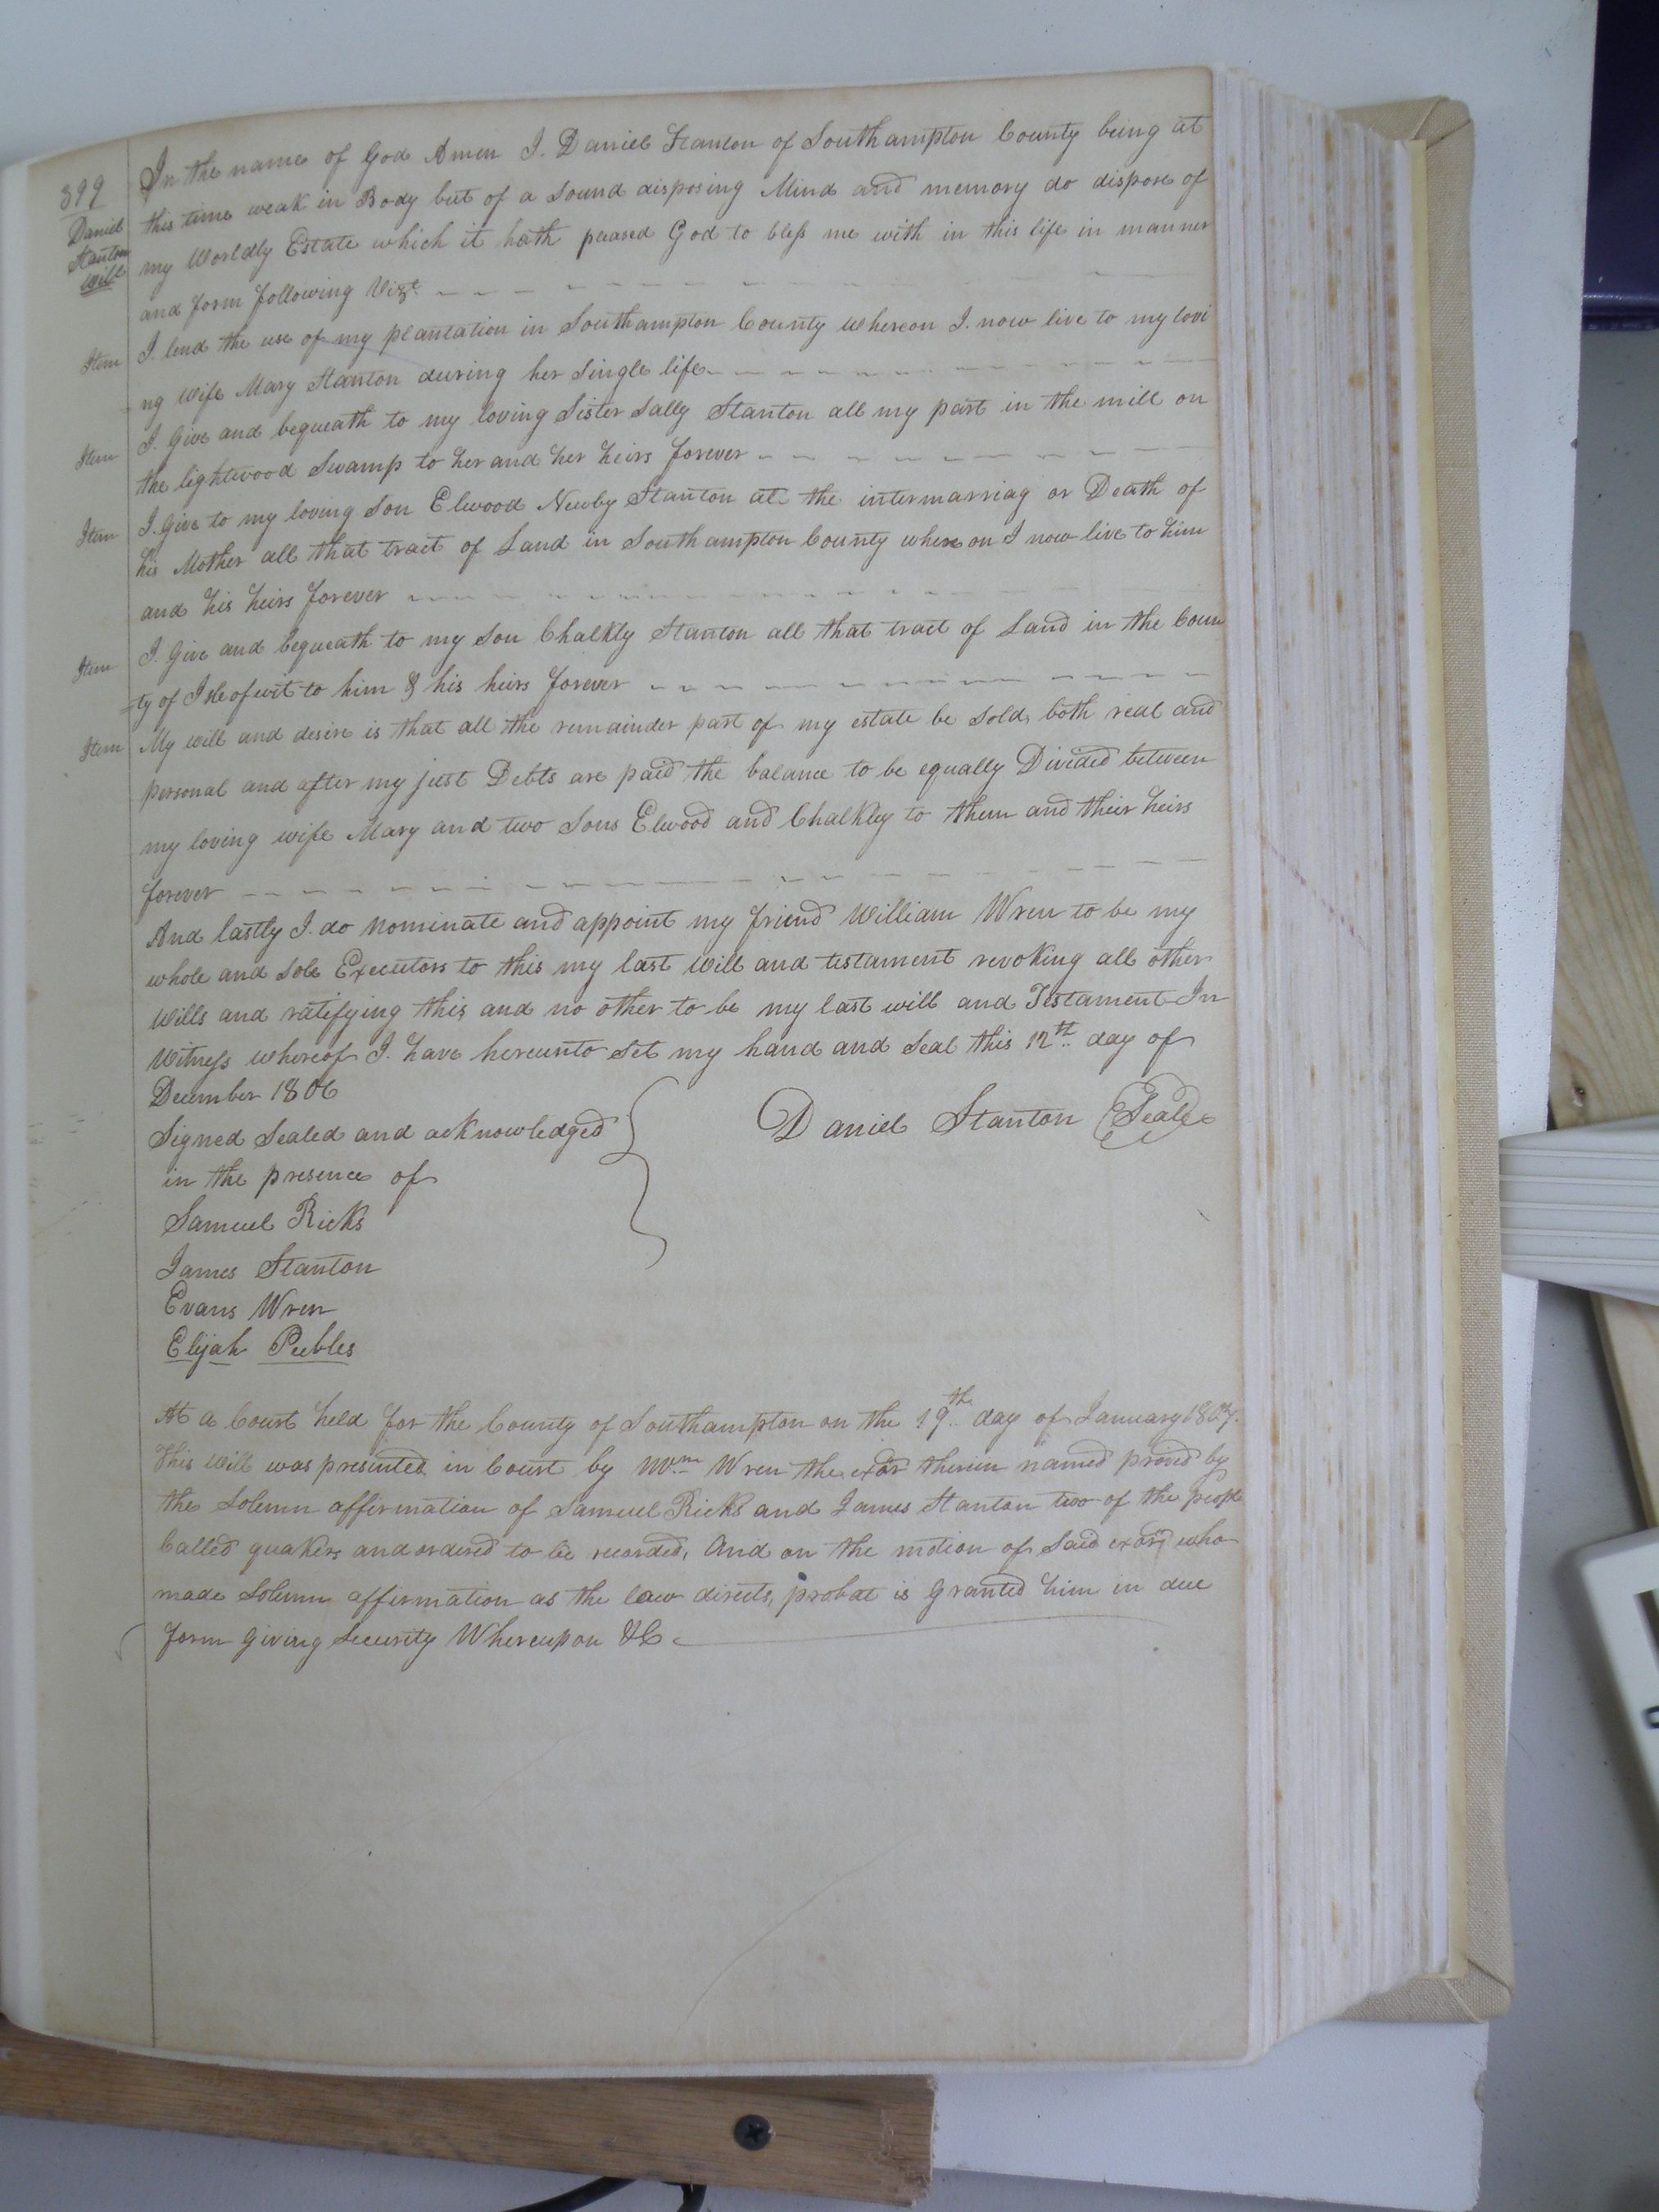 399
Daniel
Stanton
Will
In the name of God Amen I. Daniel Stanton of Southampton County being at
this time weak in Body but of a Sound disposing Mind and memory do dispose of
my Worldly Estate which it hath peased God to bless me with in this life in manner
and form following Vizt.
Item I. lend the use of my plantation in Southampton County whereon I. now live to my lovi
ng Wife Mary Stanton during her Single life
Item I. Give and bequeath to my loving Sister Sally Stanton all my part in the mill on
the lightwood Swamp to her and her heirs forever
Item I. Give to my loving Son Elwood Newby Stanton at the intermarriag or Death of
his Mother all that tract of Land in Southampton County whereon I now live to him
and his heirs forever
Item I. Give and bequeath to my Son Chalkly Stanton all that tract of Land in the Coun
ty of Isleofwit to him & his heirs forever
Item My will and desire is that all the remainder part of my estate be Sold both real and
personal and after my just Debts are paid the balance to be equally Divided between
my loving wife Mary and two Sons Elwood and Chalkley to them and their heirs
forever
And lastly I. do Nominate and appoint my friend William Wren to be my
whole and Sole Executors to this my last will and testament revoking all other
Wills and ratifying this and no other to be my last will and Testament In
Witness whereof I. have hereunto Set my hand and Seal this 12th day of
December 1806
Signed Sealed and acknowledged Daniel Stanton Seal
in the presence of
Samuel Ricks
James Stanton
Evans Wren
Elijah Peebles
At a Court held for the County of Southampton on the 19th day of January 1807.
This Will was presented in Court by Wm Wren the exōr therein named proved by
the Solemn affirmation of Samuel Ricks and James Stanton two of the people
Called quakers and ordered to be recorded, And on the motion of Said exōr who
made Solemn affirmation as the law directs, probat is Granted him in due
form Giving Security Whereupon &C